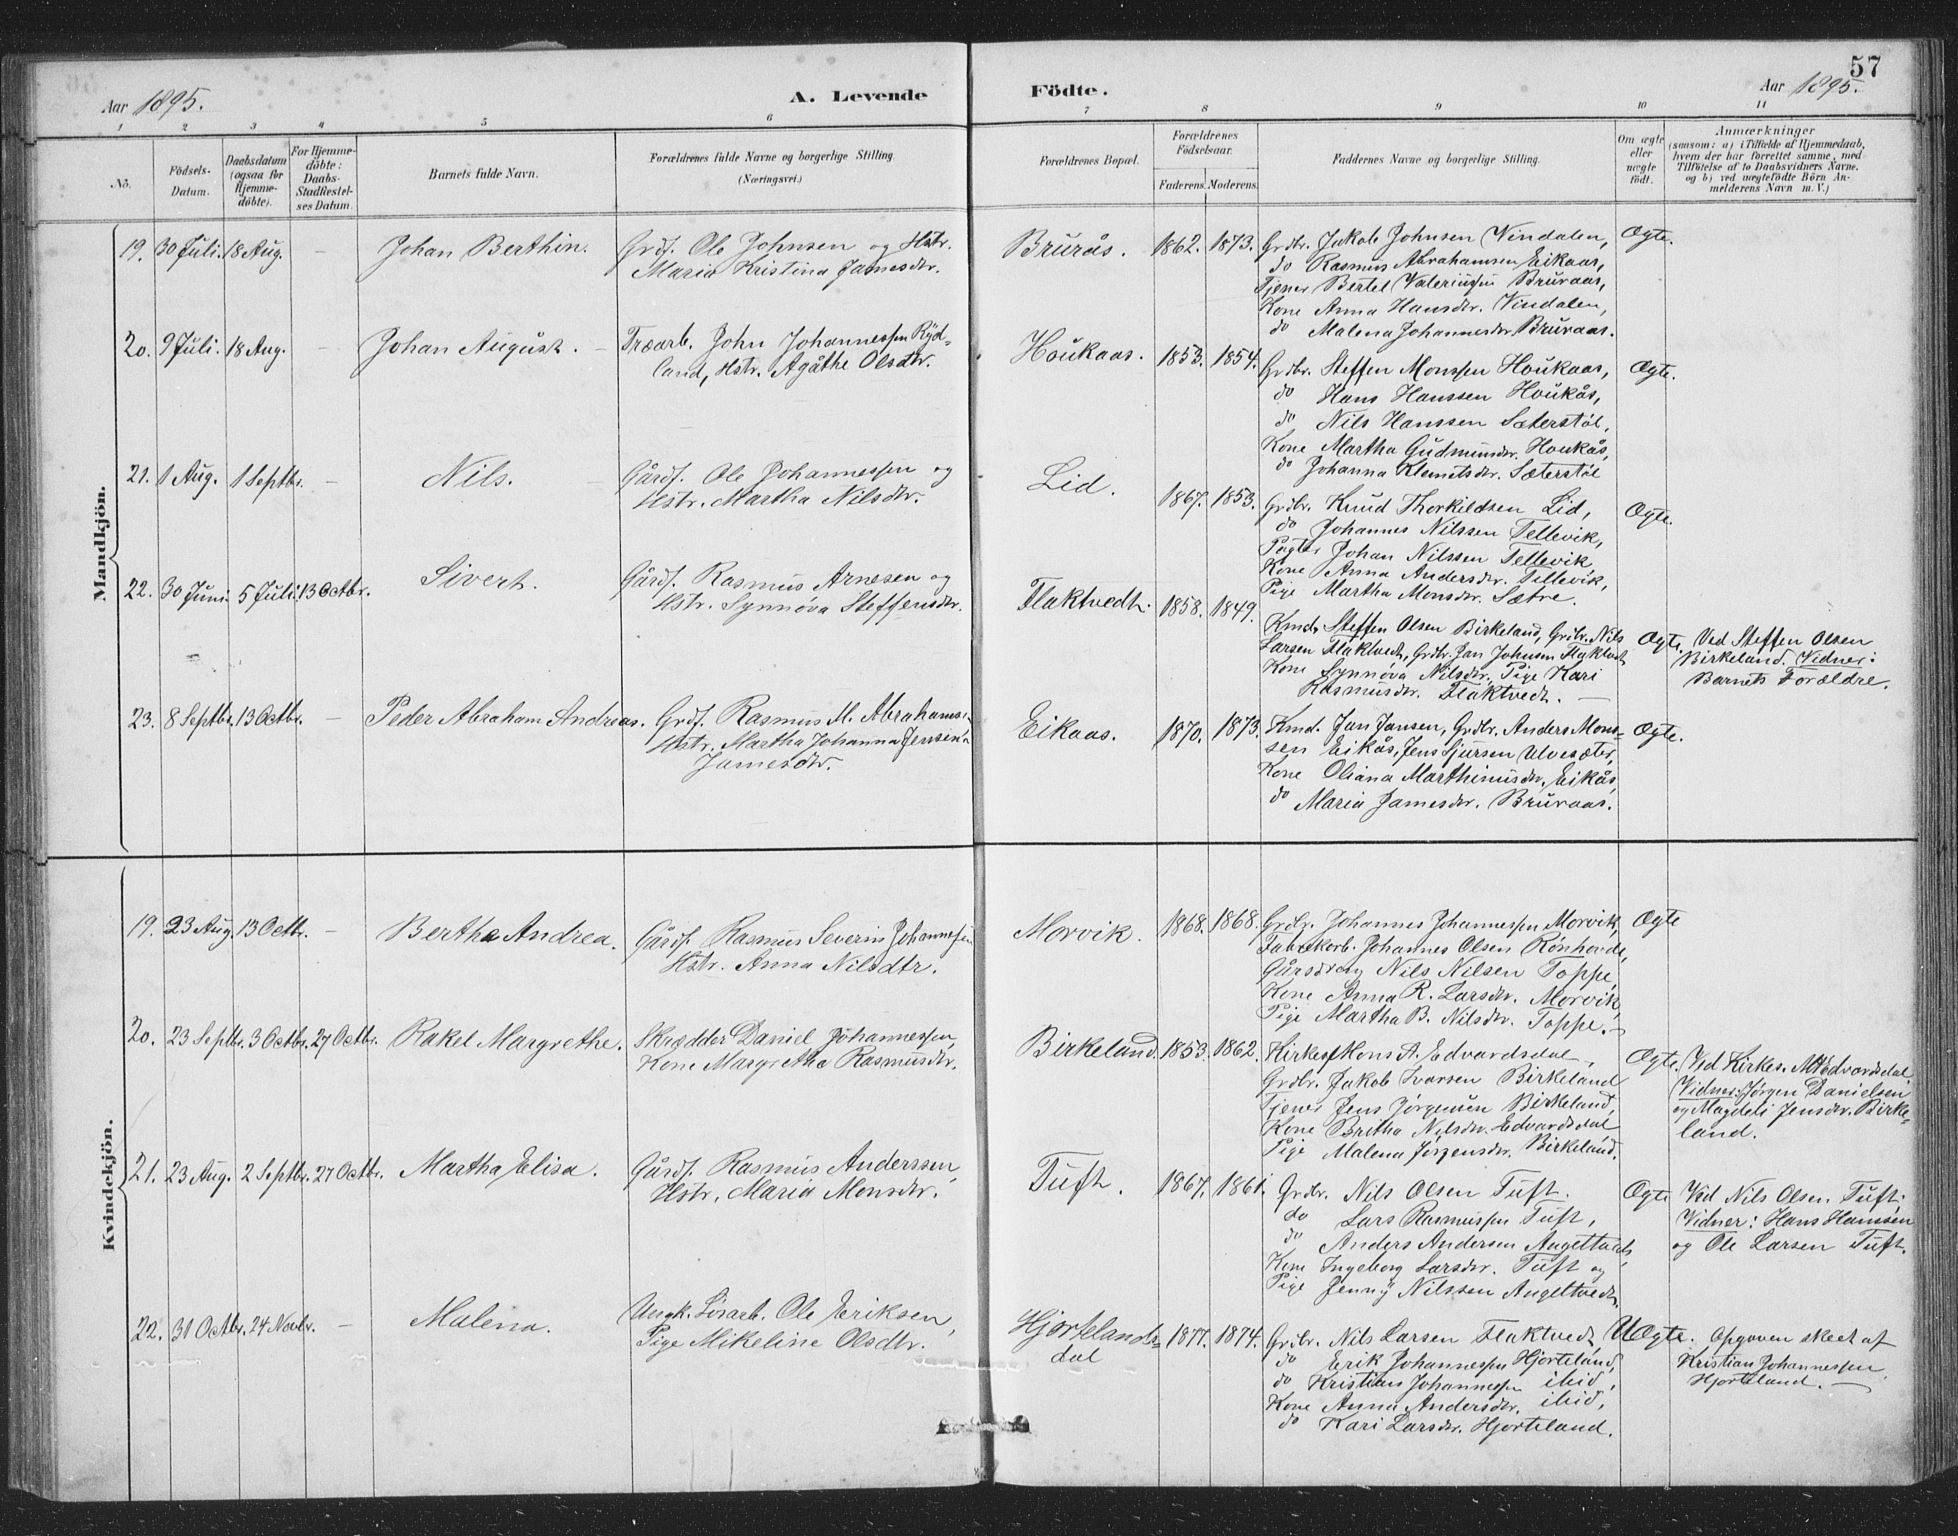 57
Aar 1895.
A. Levende
Födte.
Aar 1895.
1 2 3 4 5 6 7 8 9 10 11
No.
Födsels-
Datum.
Daabsdatum
(ogsaa for
Hjemme-
döbte).
For Hjemme-
döbte:
Daabs-
Stadfæstel-
ses Datum.
Barnets fulde Navn.
Forældrenes fulde Navne og borgerlige Stilling
(Næringsvei.)
Forældrenes Bopæl.
Forældrenes
Födselsaar.
Faderens. Moderens.
Faddernes Navne og borgerlige Stilling.
Om ægte
eller
uægte
födt.
Anmærkninger
(samsom: a) i Tilfælde af Hjemmedaab,
hvem der har forrettet samme, med
Tilföielse af to Daabsvidners Navne.
og b) ved uægtefödte Börn An-
melderens Navn m. V.)
Mandkjön.
19. 30 Juli. 18 Aug. —
Johan Berthin.
Grdf. Ole Johnsen og Hstr.
Maria Kristina Jamesdtr.
Bruraas. 1862. 1873.
Grdbr. Jakob Johnsen Vindalen,
do Rasmus Abrahamsen Eikaas,
Tjener Bertel Valeriussen Bruraas,
Kone Anna Hansdtr. Vindalen,
do Malena Johannesdtr Bruraas.
Ægte.
20. 9 Juli. 18 Aug. —
Johan August. —
Træarb. John Johannessen Ryd-
land, Hstr. Agathe Olsdtr.
Houkaas. 1853. 1854.
Grdbr. Steffen Monsen Houkaas,
do Hans Hanssen Houkås,
do Nils Hanssen Sæterstöl,
Kone Martha Gudmunsdr. Houkås,
do Johanna Klemetsdr. Sæterstöl
Ægte.
21. 1 Aug. 1 Septbr. —
Nils. —
Gårdf. Ole Johannessen og
Hstr. Martha Nilsdtr.
Lid. 1867. 1853.
Grdbr. Knud Thorkildsen Lid,
do Johannes Nilssen Tellevik,
Johan Nilssen Tellevik,
Kone Anna Andersdtr. Tellevik,
Pige Martha Monsdtr. Sætre.
Ægte.
22. 30 Juni. 5 Juli. 13 Octbr.
Sivert.
Gårdf. Rasmus Arnesen og
Hstr. Synnöva Steffensdtr.
Flaktvedt. 1858. 1849.
Kmd. Steffen Olsen Birkeland, Grdbr. Nils
Larsen Flaktvedt, Grdbr. Jan Johnsen Flaktvedt
Kone Synnöva Nilsdtr, Pige Kari
Rasmusdtr. Flaktvedt. —
Ægte.
Ved Steffen Olsen
Birkeland. Vidner:
Barnets Forældre.
23. 8 Septbr. 13 Octbr. —
Peder Abraham Andreas.
Grdf. Rasmus M. Abrahams:
Hstr. Martha Johanna Jensen:
Jamesdtr.
Eikaas. 1870. 1873.
Kmd. Jan Jansen, Grdbr. Anders Mons-
sen Eikås, Jens Sjursen Ulvesæter,
Kone Oliana Marthinusdtr. Eikås,
do Maria Jamesdtr. Bruraas.
Ægte.
Kvindekjön.
19. 23 Aug. 13 Octbr. —
Bertha Andrea.
Gårdf. Rasmus Severin Johannessen
Hstr. Anna Nilsdtr.
Morvik. 1868. 1868.
Grdbr. Johannes Johannessen Morvik,
Fabrekarb. Johannes Olsen Rönhovde,
Nils Nilsen Toppe,
Kone Anna R. Larsdtr. Morvik,
Pige Martha B. Nilsdtr. Toppe. —
Ægte
20. 23 Septbr. 3 Octbr. 27 Octbr.
Rakel Margrethe.
Skrædder Daniel Johannessen,
Kone Margretha Rasmusdtr.
Birkeland. 1853. 1862.
Kirkes. Mons A. Edvardsdal,
Grdbr. Jakob Ivarsen Birkeland
Tjener Jens Jörgensen Birkeland,
Kone Britha Nilsdtr. Edvardsdal
Pige Malena Jörgensdtr. Birkeland.
Ægte.
Ved Kirkes. M. Edvardsdal
Vidner: Jörgen Danielsen
og Magdeli Jensdtr. Birke-
land.
21. 23 Aug. 2 Septbr. 27 Octbr.
Martha Elisa.
Gårdf. Rasmus Anderssen,
Hstr. Maria Monsdtr.
Tuft. 1867. 1861.
Grdbr. Nils Olsen Tuft.
do Lars Rasmussen Tuft,
do Anders Andersen Angeltvedt,
Kone Ingeborg Larsdtr. Tuft og
Pige Jenny Nilssen Angeltvedt.
Ægte
Ved Nils Olsen Tuft.
Vidner: Hans Hanssen
og Ole Larsen Tuft.
22. 31 Octbr. 24 Novbr. —
Malena.
Ungk. Ole Eriksen,
Pige Mikeline Olsdtr.
Hjortelands-
dal 1877. 1874.
Grdbr. Nils Larsen Flaktvedt
do Erik Johannessen Hjorteland,
do Kristian Johannessen ibid,
Kone Anna Andersdtr. ibid,
do Kari Larsdtr. Hjorteland.
Uægte.
Opgaven skeet af
Kristian Johannessen
Hjorteland. —